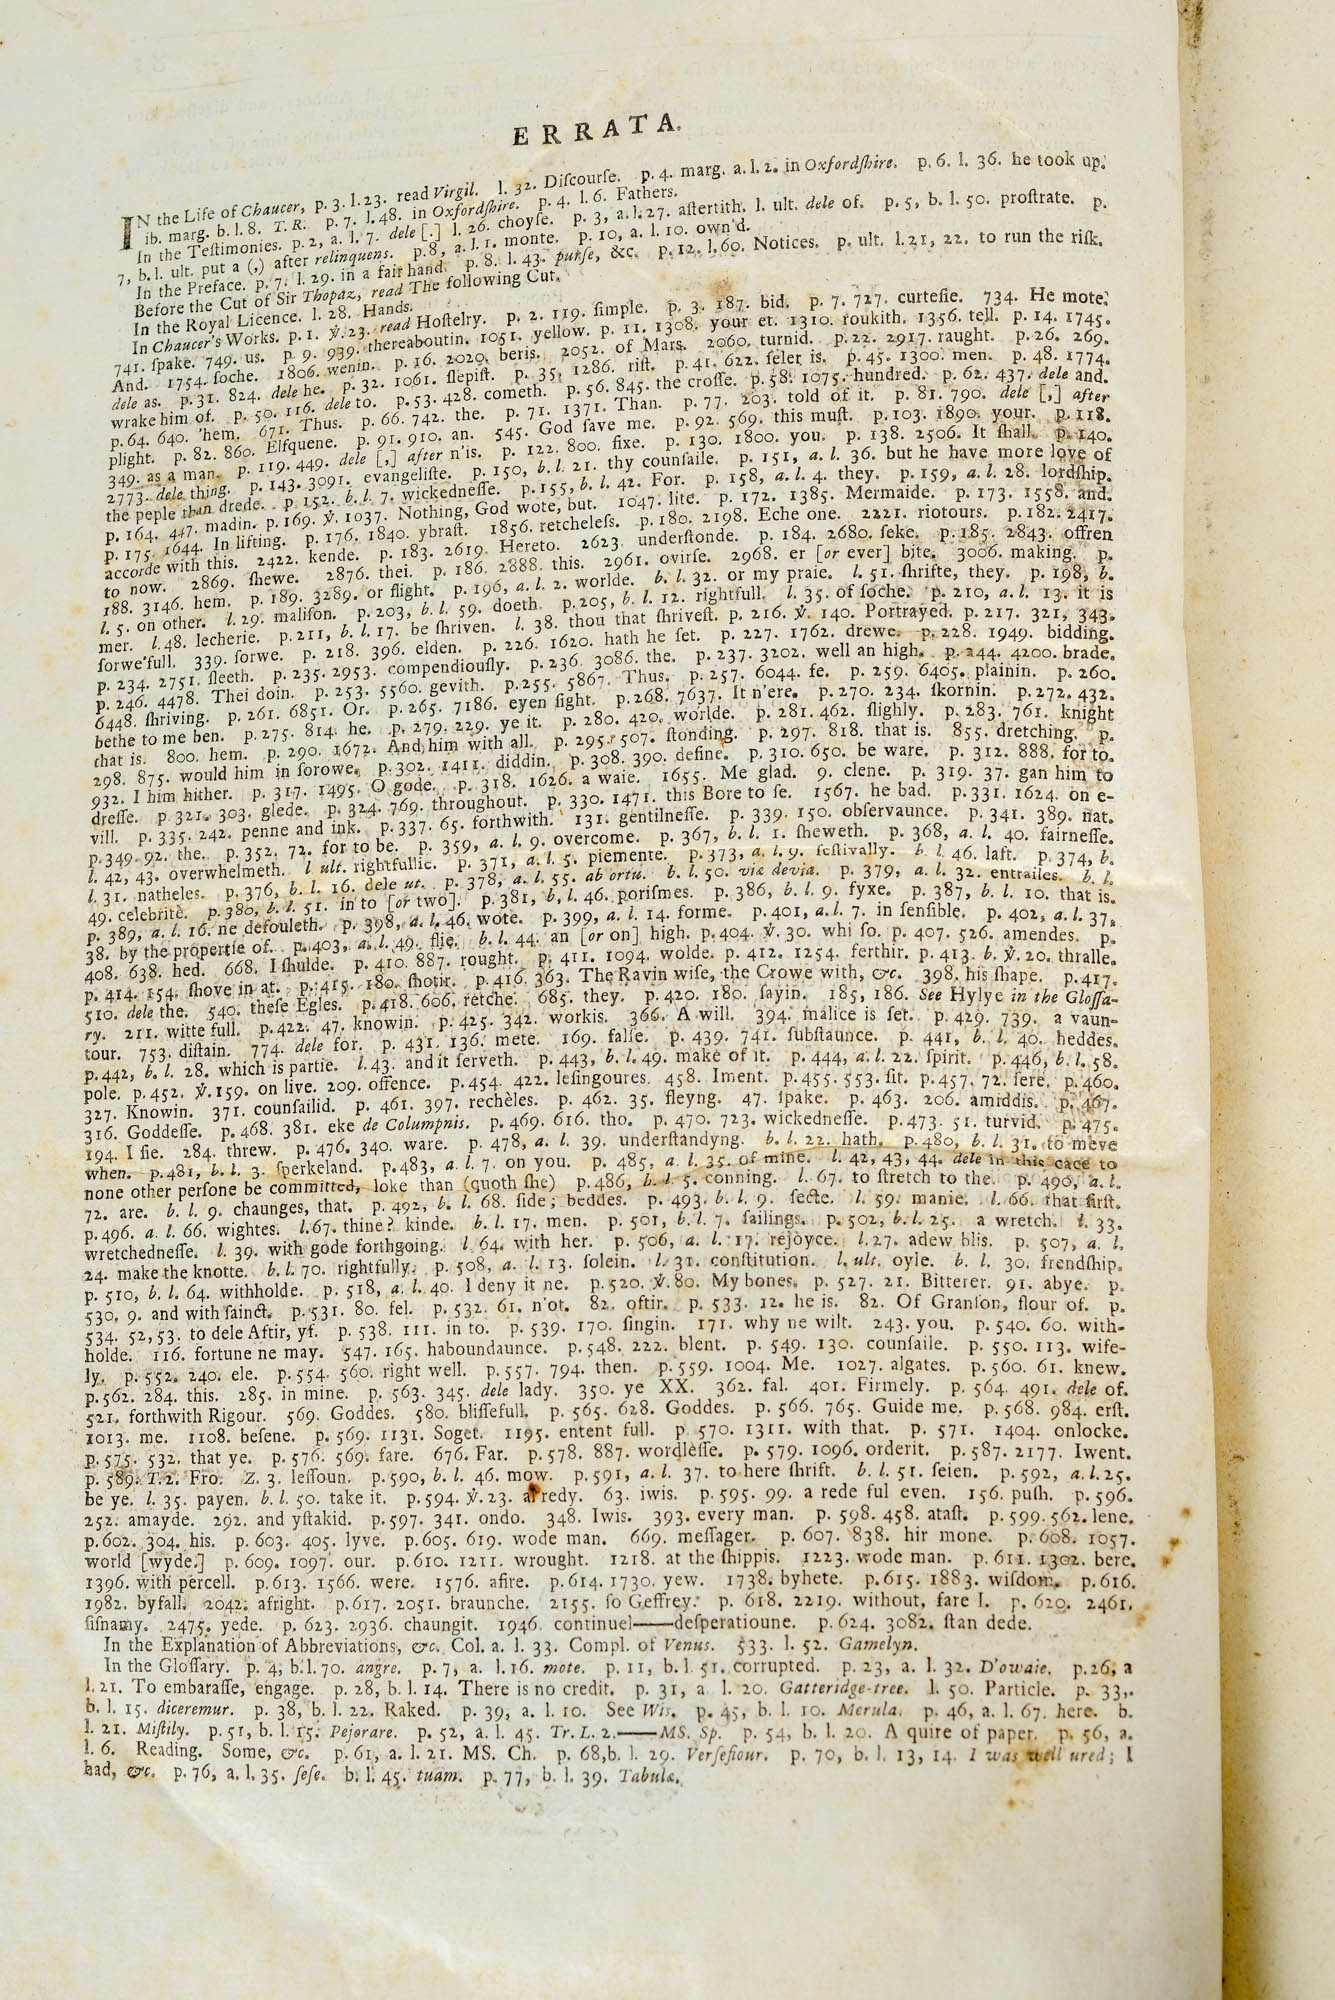 ERRATA.
IN the Life of Chaucer, p. 3. l. 23. read Virgil. l. 32. Diſcourſe. p. 4. marg. a. l. 2. in Oxfordſhire. p. 6. l. 36. he took up.
ib. marg. b. l. 8. T. R. p. 7. l. 48. in Oxfordſhire. p. 4. l. 6. Fathers.
In the Teſtimonies. p. 2, a. l. 7. dele [.] l. 26. choyſe. p. 3, a. l. 27. aſtertith. l. ult. dele of. p. 5, b. l. 50. proſtrate. p.
7, b. l. ult. put a (,) after relinquens. p. 8, a. l. 1. monte. p. 10, a. l. 10. own'd.
In the Preface. p. 7. l. 29. in a fair hand. p. 8. l. 43. purſe, &c. p. 12. l. 60. Notices. p. ult. l. 21, 22. to run the riſk.
Before the Cut of Sir Thopaz, read The following Cut.
In the Royal Licence. l. 28. Hands.
In Chaucer's Works. p. 1. ꝟ. 23. read Hoſtelry. p. 2. 119. ſimple. p. 3. 187. bid. p. 7. 727. curteſie. 734. He mote.
741. ſpake. 749. us. p. 9. 939. thereaboutin. 1051. yellow. p. 11. 1308. your et. 1310. roukith. 1356. tell. p. 14. 1745.
And. 1754. ſoche. 1806. wenin. p. 16. 2020. beris. 2052. of Mars. 2060. turnid. p. 22. 2917. raught. p. 26. 269.
dele as. p. 31. 824. dele he. p. 32. 1061. ſlepiſt. p. 35. 1286. riſt. p. 41. 622. ſelet is. p. 45. 1300. men. p. 48. 1774.
wrake him of. p. 50. 116. dele to. p. 53. 428. cometh. p. 56. 845. the croſſe. p. 58. 1075. hundred. p. 62. 437. dele and.
p. 64. 640. 'hem. 671. Thus. p. 66. 742. the. p. 71. 1371. Than. p. 77. 203. told of it. p. 81. 790. dele [,] after
plight. p. 82. 860. Elfquene. p. 91. 910. an. 545. God ſave me. p. 92. 569. this muſt. p. 103. 1890. your. p. 118.
349. as a man. p. 119. 449. dele [,] after n'is. p. 122. 800. ſixe. p. 130. 1800. you. p. 138. 2506. It ſhall. p. 140.
2773. dele thing. p. 143. 3091. evangeliſte. p. 150, b. l. 21. thy counſaile. p. 151, a. l. 36. but he have more love of
the peple than drede. p. 152. b. l. 7. wickedneſſe. p. 155, b. l. 42. For. p. 158, a. l. 4. they. p. 159, a. l. 28. lordſhip.
p. 164. 447. madin. p. 169. ꝟ. 1037. Nothing, God wote, but. 1047. lite. p. 172. 1385. Mermaide. p. 173. 1558. and.
p. 175. 1644. In lifting. p. 176. 1840. ybraſt. 1856. retcheleſs. p. 180. 2198. Eche one. 2221. riotours. p. 182. 2417.
accorde with this. 2422. kende. p. 183. 2619. Hereto. 2623. underſtonde. p. 184. 2680. ſeke. p. 185. 2843. offren
to now. 2869. ſhewe. 2876. thei. p. 186. 2888. this. 2961. ovirſe. 2968. er [or ever] bite. 3006. making. p.
188. 3146. hem. p. 189. 3289. or flight. p. 196, a. l. 2. worlde. b. l. 32. or my praie. l. 51. ſhrifte, they. p. 198, b.
l. 5. on other. l. 29. maliſon. p. 203, b. l. 59. doeth. p. 205, b. l. 12. rightfull. l. 35. of ſoche. p. 210, a. l. 13. it is
mer. l. 48. lecherie. p. 211, b. l. 17. be ſhriven. l. 38. thou that ſhriveſt. p. 216. ꝟ. 140. Portrayed. p. 217. 321, 343.
ſorwe'full. 339. ſorwe. p. 218. 396. elden. p. 226. 1620. hath he ſet. p. 227. 1762. drewe. p. 228. 1949. bidding.
p. 234. 2751. ſleeth. p. 235. 2953. compendiouſly. p. 236. 3086. the. p. 237. 3202. well an high. p. 244. 4200. brade.
p. 246. 4478. Thei doin. p. 253. 5560. gevith. p. 255. 5867. Thus. p. 257. 6044. ſe. p. 259. 6405. plainin. p. 260.
6448. ſhriving. p. 261. 6851. Or. p. 265. 7186. eyen ſight. p. 268. 7637. It n'ere. p. 270. 234. ſkornin. p. 272. 432.
bethe to me ben. p. 275. 814. he. p. 279. 229. ye it. p. 280. 420. worlde. p. 281. 462. ſlighly. p. 283. 761. knight
that is. 800. hem. p. 290. 1672. And him with all. p. 295. 507. ſtonding. p. 297. 818. that is. 855. dretching. p.
298. 875. would him in ſorowe. p. 302. 1411. diddin. p. 308. 390. define. p. 310. 650. be ware. p. 312. 888. for to.
932. I him hither. p. 317. 1495. O gode. p. 318. 1626. a waie. 1655. Me glad. 9. clene. p. 319. 37. gan him to
dreſſe. p. 321. 303. glede. p. 324. 769. throughout. p. 330. 1471. this Bore to ſe. 1567. he bad. p. 331. 1624. on e-
vill. p. 335. 242. penne and ink. p. 337. 65. forthwith. 131. gentilneſſe. p. 339. 150. obſervaunce. p. 341. 389. nat.
p. 349. 92. the. p. 352. 72. for to be. p. 359, a. l. 9. overcome. p. 367, b. l. 1. ſheweth. p. 368, a. l. 40. fairneſſe.
l. 42, 43. overwhelmeth. l. ult. rightfullie. p. 371, a. l. 5. piemente. p. 373, a. l. 9. feſtivally. b. l. 46. laſt. p. 374, b.
l. 31. natheles. p. 376, b. l. 16. dele ut. p. 378, a. l. 55. ab ortu. b. l. 50. viæ devia. p. 379, a. l. 32. entrailes. b. l.
49. celebrite. p. 380, b. l. 51. in to [or two]. p. 381, b. l. 46. poriſmes. p. 386, b. l. 9. fyxe. p. 387, b. l. 10. that is.
p. 389, a. l. 16. ne defouleth. p. 398, a. l. 46. wote. p. 399, a. l. 14. forme. p. 401, a. l. 7. in ſenſible. p. 402, a. l. 37.
38. by the propertie of. p. 403, a. l. 49. flie. b. l. 44. an [or on] high. p. 404. ꝟ. 30. who ſo. p. 407. 526. amendes. p.
408. 638. hed. 668. I ſhulde. p. 410. 887. rought. p. 411. 1094. wolde. p. 412. 1254. ferthir. p. 413. b. ꝟ. 20. thralle.
p. 414. 154. ſhove in at. p. 415. 180. ſhotir. p. 416. 363. The Ravin wiſe, the Crowe with, &c. 398. his ſhape. p. 417.
510. dele the. 540. theſe Egles. p. 418. 606. retche. 685. they. p. 420. 180. ſayin. 185, 186. See Hylye in the Gloſſa-
ry. 211. witte full. p. 422. 47. knowin. p. 425. 342. workis. 366. A will. 394. malice is ſet. p. 429. 739. a vaun-
tour. 753. diſtain. 774. dele for. p. 431. 136. mete. 169. falſe. p. 439. 741. ſubſtaunce. p. 441, b. l. 40. heddes.
p. 442, b. l. 28. which is partie. l. 43. and it ſerveth. p. 443, b. l. 49. make of it. p. 444, a. l. 22. ſpirit. p. 446, b. l. 58.
pole. p. 452. ꝟ. 159. on live. 209. offence. p. 454. 422. leſingoures. 458. Iment. p. 455. 553. ſit. p. 457. 72. fere. p. 460.
327. Knowin. 371. counſailid. p. 461. 397. rechèles. p. 462. 35. fleyng. 47. ſpake. p. 463. 206. amiddis. p. 467.
316. Goddeſſe. p. 468. 381. eke de Columpnis. p. 469. 616. tho. p. 470. 723. wickedneſſe. p. 473. 51. turvid. p. 475.
194. I ſie. 284. threw. p. 476. 340. ware. p. 478, a. l. 39. underſtandyng. b. l. 22. hath. p. 480, b. l. 31. to meve
when. p. 481, b. l. 3. ſperkeland. p. 483, a. l. 7. on you. p. 485, a. l. 35. of mine. l. 42, 43, 44. dele in this cace to
none other perſone be committed, loke than (quoth ſhe) p. 486, b. l. 5. conning. l. 67. to ſtretch to the. p. 490, a. l.
72. are. b. l. 9. chaunges, that. p. 492, b. l. 68. ſide; beddes. p. 493. b. l. 9. ſecte. l. 59. manie. l. 66. that firſt.
p. 496. a. l. 66. wightes. l. 67. thine? kinde. b. l. 17. men. p. 501, b. l. 7. failings. p. 502, b. l. 25. a wretch. l. 33.
wretchedneſſe. l. 39. with gode forthgoing. l. 64. with her. p. 506, a. l. 17. rejoyce. l. 27. adew blis. p. 507, a. l.
24. make the knotte. b. l. 70. rightfully. p. 508, a. l. 13. ſolein. l. 31. conſtitution. l. ult. oyle. b. l. 30. frendſhip.
p. 510, b. l. 64. withholde. p. 518, a. l. 40. I deny it ne. p. 520. ꝟ. 80. My bones. p. 527. 21. Bitterer. 91. abye. p.
530. 9. and with ſainct. p. 531. 80. fel. p. 532. 61. n'ot. 82. oftir. p. 533. 12. he is. 82. Of Granſon, flour of. p.
534. 52, 53. to dele Aftir, yf. p. 538. 111. in to. p. 539. 170. ſingin. 171. why ne wilt. 243. you. p. 540. 60. with-
holde. 116. fortune ne may. 547. 165. haboundaunce. p. 548. 222. blent. p. 549. 130. counſaile. p. 550. 113. wife-
ly. p. 552. 240. ele. p. 554. 560. right well. p. 557. 794. then. p. 559. 1004. Me. 1027. algates. p. 560. 61. knew.
p. 562. 284. this. 285. in mine. p. 563. 345. dele lady. 350. ye XX. 362. fal. 401. Firmely. p. 564. 491. dele of.
521. forthwith Rigour. 569. Goddes. 580. bliſſefull. p. 565. 628. Goddes. p. 566. 765. Guide me. p. 568. 984. erſt.
1013. me. 1108. beſene. p. 569. 1131. Soget. 1195. entent full. p. 570. 1311. with that. p. 571. 1404. onlocke.
p. 575. 532. that ye. p. 576. 569. fare. 676. Far. p. 578. 887. wordlèſſe. p. 579. 1096. orderit. p. 587. 2177. I went.
p. 589. T. 2. Fro. Z. 3. leſſoun. p. 590, b. l. 46. mow. p. 591, a. l. 37. to here ſhrift. b. l. 51. ſeien. p. 592, a. l. 25.
be ye. l. 35. payen. b. l. 50. take it. p. 594. ꝟ. 23. a redy. 63. iwis. p. 595. 99. a rede ful even. 156. puſh. p. 596.
252. amayde. 292. and yſtakid. p. 597. 341. ondo. 348. Iwis. 393. every man. p. 598. 458. ataſt. p. 599. 562. lene.
p. 602. 304. his. p. 603. 405. lyve. p. 605. 619. wode man. 669. meſſager. p. 607. 838. hir mone. p. 608. 1057.
world [wyde.] p. 609. 1097. our. p. 610. 1211. wrought. 1218. at the ſhippis. 1223. wode man. p. 611. 1302. bere.
1396. with percell. p. 613. 1566. were. 1576. afire. p. 614. 1730. yew. 1738. byhete. p. 615. 1883. wiſdom. p. 616.
1982. byfall. 2042. afright. p. 617. 2051. braunche. 2155. ſo Geffrey. p. 618. 2219. without, fare I. p. 620. 2461.
ſiſnamy. 2475. yede. p. 623. 2936. chaungit. 1946. continuel——deſperatioune. p. 624. 3082. ſtan dede.
In the Explanation of Abbreviations, &c. Col. a. l. 33. Compl. of Venus. 533. l. 52. Gamelyn.
In the Gloſſary. p. 4, b. l. 70. angre. p. 7, a. l. 16. mote. p. 11, b. l. 51. corrupted. p. 23, a. l. 32. D'owaie. p. 26, a
l. 21. To embaraſſe, engage. p. 28, b. l. 14. There is no credit. p. 31, a l. 20. Gatteridge-tree. l. 50. Particle. p. 33,
b. l. 15. diceremur. p. 38, b. l. 22. Raked. p. 39, a. l. 10. See Wis. p. 45, b. l. 10. Merula. p. 46, a. l. 67. here. b.
l. 21. Miſtily. p. 51, b. l. 15. Pejorare. p. 52, a. l. 45. Tr. L. 2.——MS. Sp. p. 54, b. l. 20. A quire of paper. p. 56, a.
l. 6. Reading. Some, &c. p. 61, a. l. 21. MS. Ch. p. 68, b. l. 29. Verſefiour. p. 70, b. l. 13, 14. I was well ured; I
had, &c. p. 76, a. l. 35. ſeſe. b. l. 45. tuam. p. 77, b. l. 39. Tabulæ.